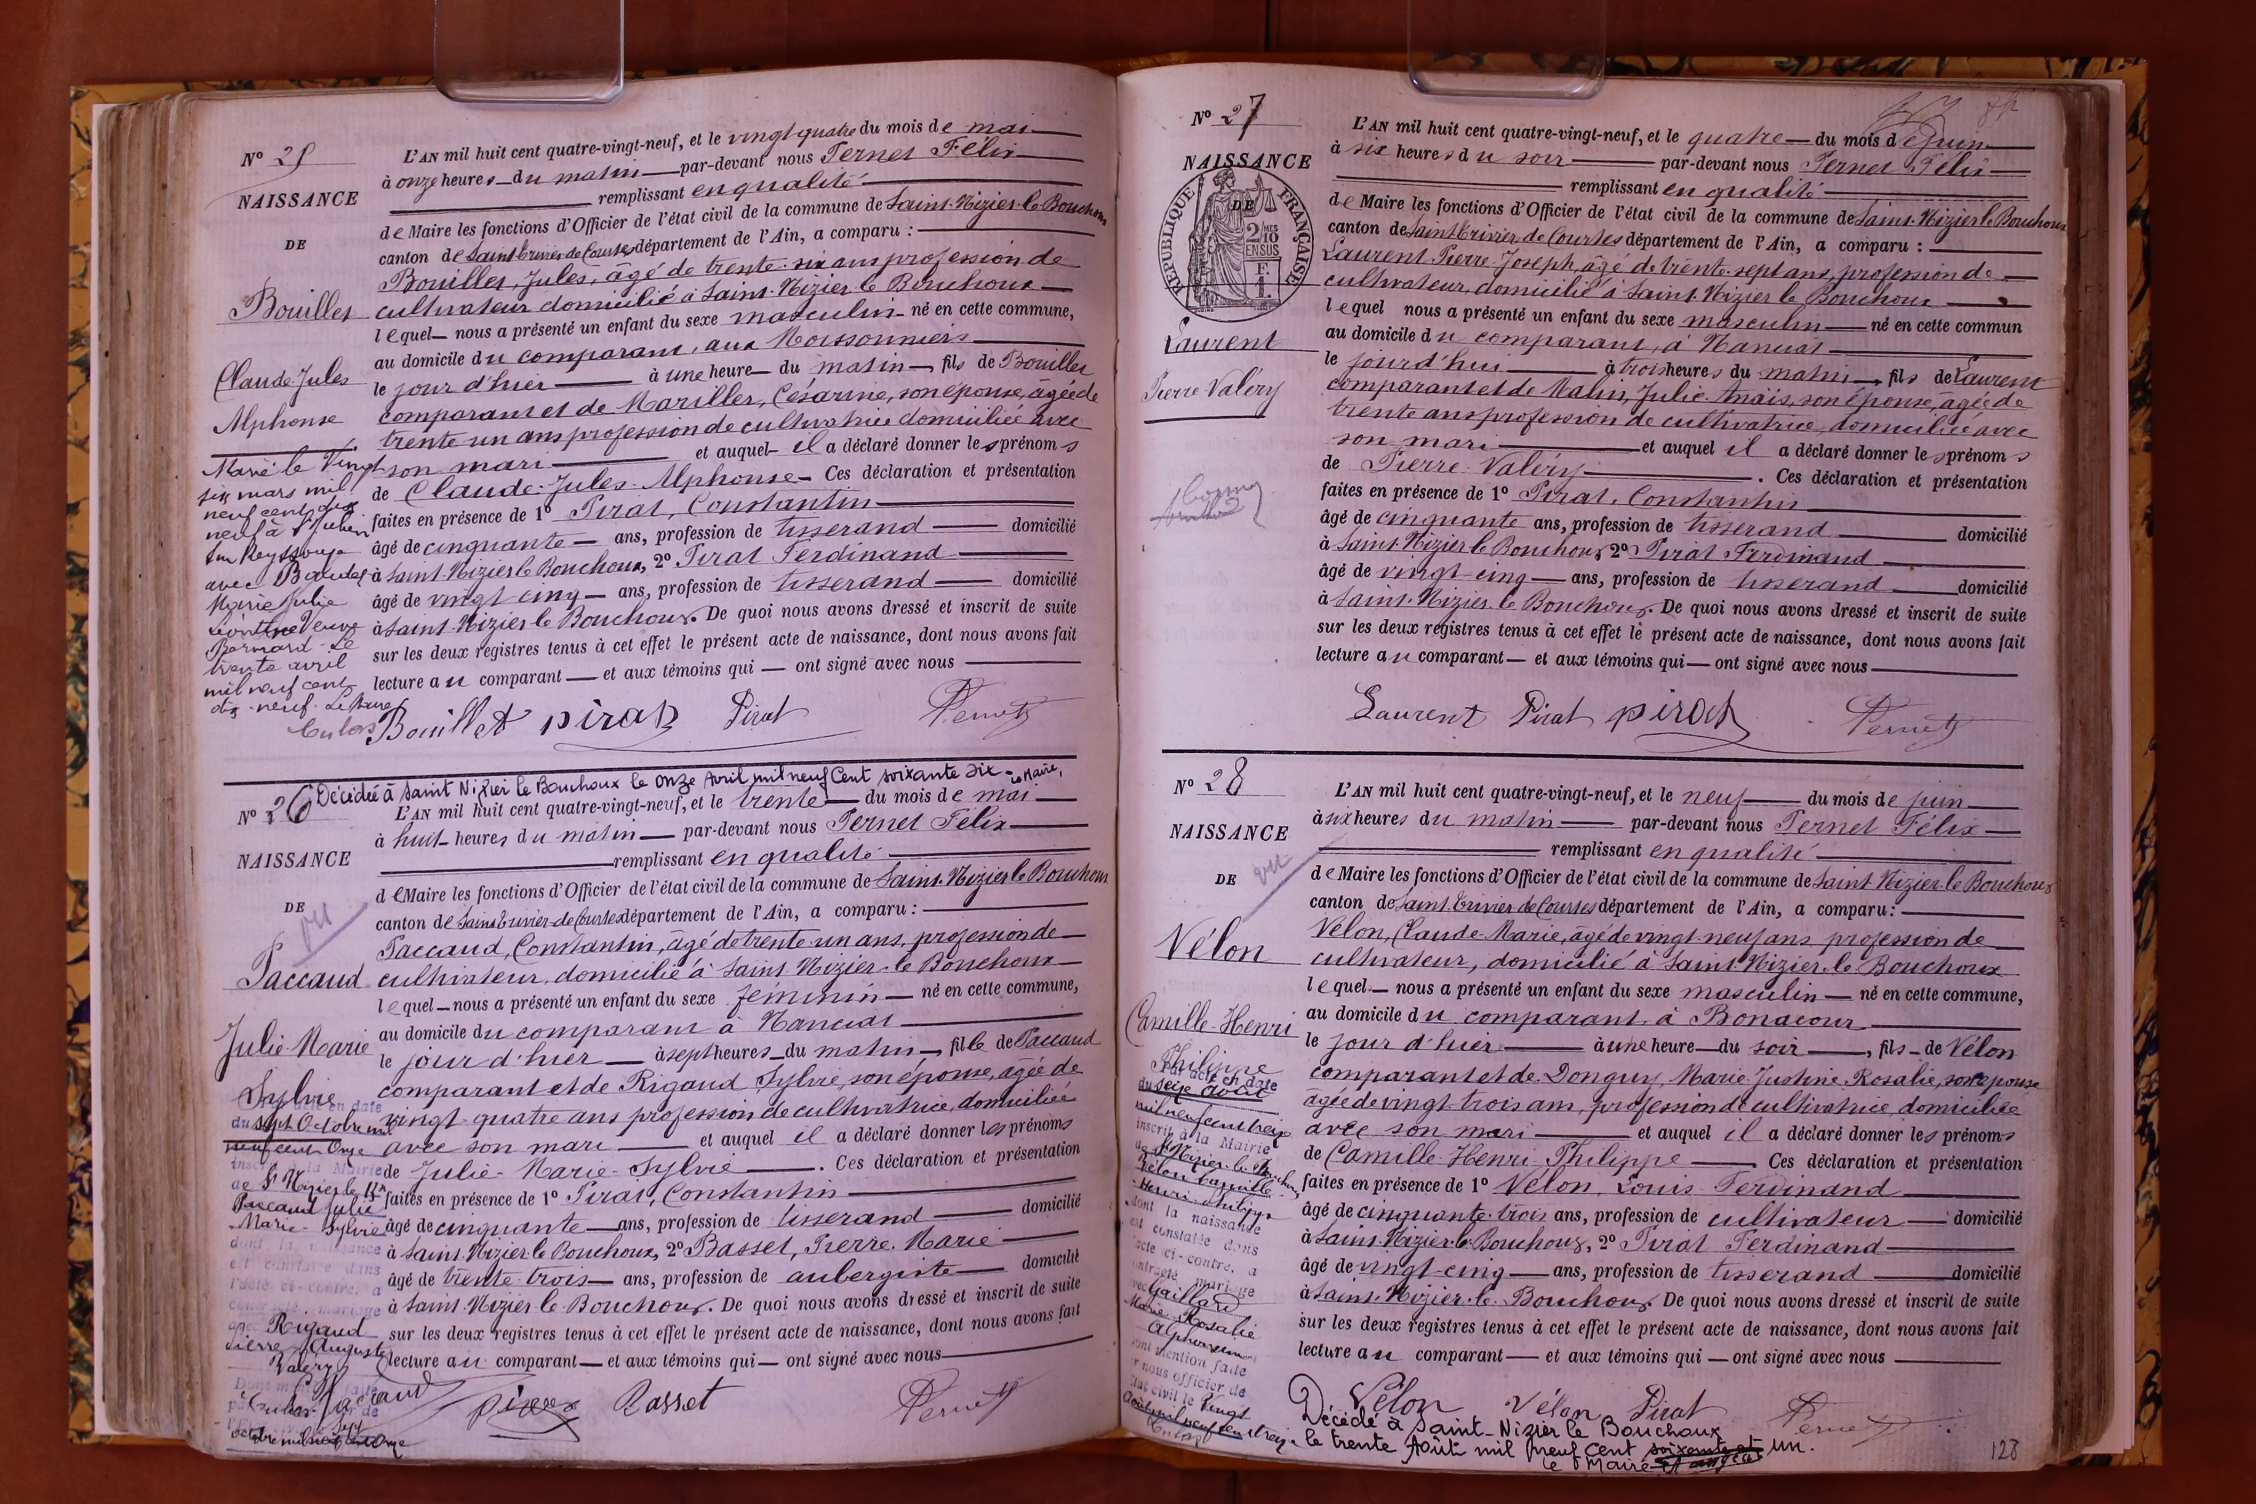 N° 25
NAISSANCE
DE
Bouillet
Claude-Jules
Alphonse
Marié le Vingt
six mars mil
neuf cent dix
neuf à St Julien
sur Reyssouze
avec
Marie Julie
Léontine Veuve
Bernard. Le
trente avril
mil neuf cent
dix-neuf. Le Maire
L'AN mil huit cent quatre-vingt-neuf, et le vingt quatre du mois de mai
à onze heures du matin par-devant nous Pernet Félix
remplissant en qualité
de Maire les fonctions d'Officier de l'état civil de la commune de Saint-Nizier-le-Bouchoux
canton de Saint Trivier de Courtes département de l'Ain, a comparu :
Bouillet, Jules, âgé de trente-six ans profession de
cultivateur domicilié à Saint-Nizier le Bouchoux
lequel nous a présenté un enfant du sexe masculin né en cette commune,
au domicile du comparant, aux Moissonniers
le jour d'hier à une heure du matin, fils de Bouillet
comparant et de Mariller, Césarine, son épouse, âgée de
trente un ans profession de cultivatrice domiciliée avec
son mari et auquel il a déclaré donner les prénoms
de Claude-Jules-Alphonse Ces déclaration et présentation
faites en présence de 1° Pirat, Constantin
âgé de cinquante ans, profession de tisserand domicilié
à Saint-Nizier le Bouchoux, 2° Pirat Ferdinand
âgé de vingt cinq ans, profession de tisserand domicilié
à Saint-Nizier le Bouchoux. De quoi nous avons dressé et inscrit de suite
sur les deux registres tenus à cet effet le présent acte de naissance, dont nous avons fait
lecture au comparant et aux témoins qui ont signé avec nous
Bouillet pirat Pirat Pernet
Décédée à Saint Nizier le Bouchoux le onze Avril mil neuf Cent soixante dix - le Maire,
N° 26
NAISSANCE
DE
vu
Paccaud
Julie-Marie
Sylvie
Par acte en date
du sept Octobre mil
neuf cent Onze
inscrit à la Mairie
de St Nizier le Bx
Paccaud Julie
Marie-Sylvie
dont la naissance
est constatée dans
l'acte ci-contre, a
contracté mariage
avec Rigaud
Pierre Auguste
Valéry
octobre mil neuf cent onze
L'AN mil huit cent quatre-vingt-neuf, et le trente du mois de mai
à huit heures du matin par-devant nous Pernet Félix
remplissant en qualité
de Maire les fonctions d'Officier de l'état civil de la commune de Saint-Nizier le Bouchoux
canton de Saint Trivier de Courtes département de l'Ain, a comparu :
Paccaud, Constantin, âgé de trente un ans, profession de
cultivateur, domicilié à Saint Nizier-le Bouchoux
lequel nous a présenté un enfant du sexe féminin né en cette commune,
au domicile du comparant à Nancuat
le jour d'hier à sept heures du matin, fille de Paccaud
comparant et de Rigaud Sylvie, son épouse, âgée de
vingt-quatre ans profession de cultivatrice, domiciliée
avec son mari et auquel il a déclaré donner les prénoms
de Julie-Marie-Sylvie. Ces déclaration et présentation
faites en présence de 1° Pirat, Constantin
âgé de cinquante ans, profession de tisserand domicilié
à Saint-Nizier le Bouchoux, 2° Basset, Pierre-Marie
âgé de trente-trois ans, profession de aubergiste domicilié
à Saint-Nizier-le Bouchoux. De quoi nous avons dressé et inscrit de suite
sur les deux registres tenus à cet effet le présent acte de naissance, dont nous avons fait
lecture au comparant et aux témoins qui ont signé avec nous
Paccaud pirat Basset Pernet
N° 27
NAISSANCE
DE
RÉPUBLIQUE FRANÇAISE
2/10 MES
EN SUS
F.
1.
Laurent
Pierre Valéry
L'AN mil huit cent quatre-vingt-neuf, et le quatre du mois de Juin
à six heures du soir par-devant nous Pernet Félix
remplissant en qualité
de Maire les fonctions d'Officier de l'état civil de la commune de Saint-Nizier le Bouchoux
canton de Saint Trivier de Courtes département de l'Ain, a comparu :
Laurent Pierre-Joseph, âgé de trente-sept ans, profession de
cultivateur, domicilié à Saint-Nizier le Bouchoux
lequel nous a présenté un enfant du sexe masculin né en cette commun
au domicile du comparant, à Nancuat
le jourd'hui à trois heures du matin, fils de Laurent
comparant et de Malin, Julie-Anaïs, son épouse, âgée de
trente ans profession de cultivatrice, domiciliée avec
son mari et auquel il a déclaré donner les prénoms
de Pierre-Valéry. Ces déclaration et présentation
faites en présence de 1° Pirat, Constantin
âgé de cinquante ans, profession de tisserand domicilié
à Saint-Nizier le Bouchoux 2° Pirat Ferdinand
âgé de vingt-cinq ans, profession de tisserand domicilié
à Saint-Nizier-le Bouchoux. De quoi nous avons dressé et inscrit de suite
sur les deux registres tenus à cet effet le présent acte de naissance, dont nous avons fait
lecture au comparant et aux témoins qui ont signé avec nous
Laurent Pirat pirat Pernet
N° 28
NAISSANCE
DE
vu
Vélon
Camille-Henri
Philippe
Par acte en date
du seize Août
mil neuf cent treize
inscrit à la Mairie
de St Nizier-le-Bouchoux
Vélon Camille
Henri-Philippe
dont la naissance
est constatée dans
l'acte ci-contre, a
contracté mariage
avec Gaillard
Marie Rosalie
Alphonsine
dont mention faite
par nous officier de
l'état civil le Vingt
Août mil neuf cent treize
L'AN mil huit cent quatre-vingt-neuf, et le neuf du mois de juin
à six heures du matin par-devant nous Pernet Félix
remplissant en qualité
de Maire les fonctions d'Officier de l'état civil de la commune de Saint Nizier-le Bouchoux
canton de Saint-Trivier de Courtes département de l'Ain, a comparu :
Vélon, Claude-Marie, âgé de vingt-neuf ans profession de
cultivateur, domicilié à Saint Nizier-le Bouchoux
lequel nous a présenté un enfant du sexe masculin né en cette commune,
au domicile du comparant, à Bonacour
le jour d'hier à une heure du soir, fils de Vélon
comparant et de Donguy, Marie Justine Rosalie, son épouse
âgée de vingt-trois ans, profession de cultivatrice domiciliée
avec son mari et auquel il a déclaré donner les prénoms
de Camille-Henri-Philippe. Ces déclaration et présentation
faites en présence de 1° Vélon, Louis-Ferdinand
âgé de cinquante-trois ans, profession de cultivateur domicilié
à Saint-Nizier-le Bouchoux, 2° Pirat Ferdinand
âgé de vingt-cinq ans, profession de tisserand domicilié
à Saint-Nizier-le Bouchoux. De quoi nous avons dressé et inscrit de suite
sur les deux registres tenus à cet effet le présent acte de naissance, dont nous avons fait
lecture au comparant et aux témoins qui ont signé avec nous
Vélon Vélon Pirat Pernet
Décédé à Saint-Nizier le Bouchoux
le trente Août mil neuf cent soixante et un.
le Maire
128